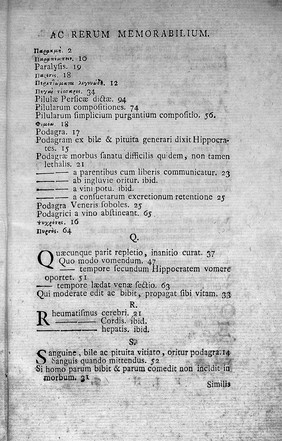 AC RERUM MEMORABILIUM.
2
10
Paralysis. 19
18
12
34
Pilulæ Persicæ dictæ. 94
Pilularum compositiones. 74
Pilularum simplicium purgantium compositio. 56.
18
Podagra. 17
Podagram ex bile & pituita generari dixit Hippocra-
tes. 15
Podagræ morbus sanatu difficilis quidem, non tamen
lethalis. 21
——— a parentibus cum liberis communicatur. 23
——— ab ingluvie oritur. ibid.
——— a vini potu. ibid.
——— a consuetarum excretionum retentione 25
Podagra Veneris soboles. 25
Podagrici a vino abstineant. 65
16
64
Q.
Quæcunque parit repletio, inanitio curat. 37
Quo modo vomendum. 47
——— tempore secundum Hippocratem vomere
oportet. 51
——— tempore lædat venæ sectio. 63
Qui moderate edit ac bibit, propagat sibi vitam. 33
R.
Rheumatismus cerebri. 21
——— Cordis. ibid.
——— hepatis. ibid.
S.
Sanguine, bile ac pituita vitiato, oritur podagra. 14
Sanguis quando mittendus. 52
Si homo parum bibit & parum comedit non incidit in
morbum. 31
Similia